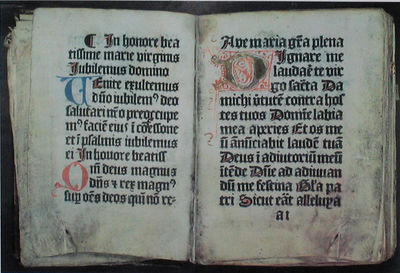 C In honore bea
tissime marie virginis
Iubilemus domino
Uenite exultemus
dño iubilem⁹ deo
salutari nr̄o preoccupe
m⁹ faciē eius ī cōfessione
et ī psalmis iubilemus
ei In honore beatiss̄
Qm̄ deus magnus
dñs ⁊ rex magn⁹
sup om̄s deos qm̄ nō re-
Aue maria gr̄a plena
Dignare me
laudare te vir
go sac̄ta Da
michi v̓tutē contra hos
tes tuos Domīe labia
mea aperies Et os me
ū ān̄ūciabit laudē tuā
Deus ī adiutoriū meū
ītēde Dn̄e ad adiuuan
dū me festina Gl̓a pa
tri Sicut erāt alleluya
a1